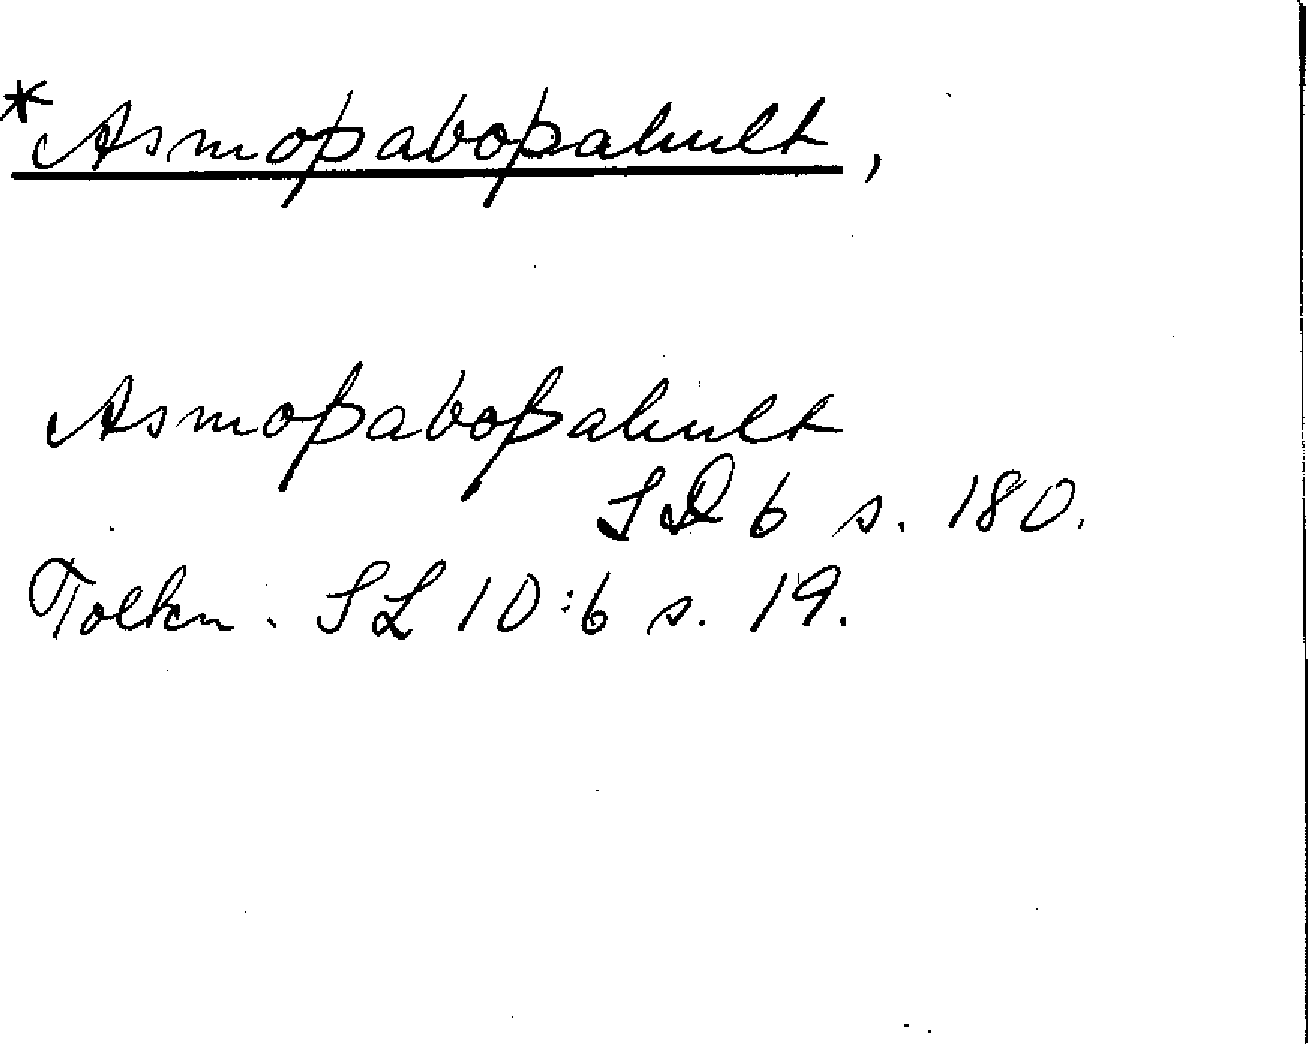 *Asmoþaboþahult,
Asmoþaboþahult
SD 6 s. 180.
Tolkn. SL 10:6 s. 19.